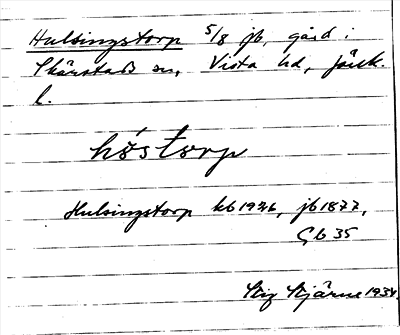 Hulsingstorp 5/8 jb, gård i
Skärstads sn, Vista hd, Jönk.
l.
hö́storp
Hulsingstorp kb 1936, jb 1877,
Gb 35
Stig Stjärne 1934.